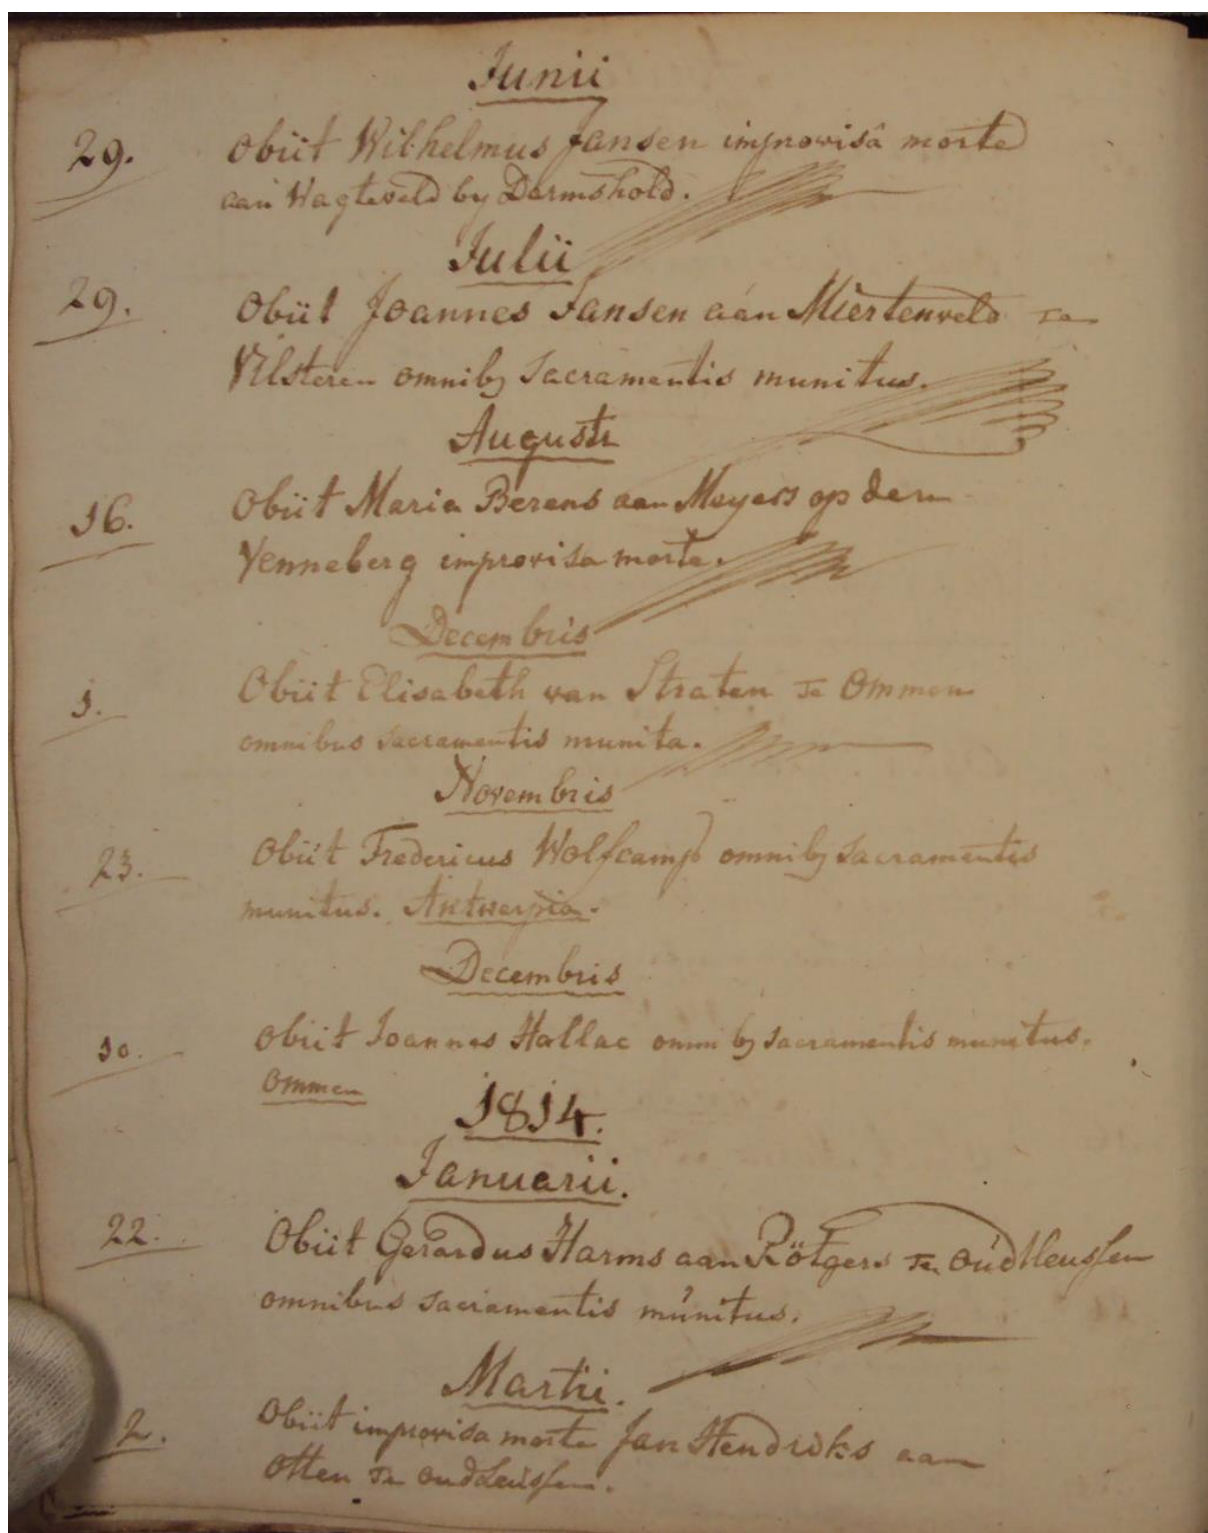 Junii
29. Obiit Wilhelmus Jansen improvisâ morte
aan Wagteveld by Darmshold.
Julii
29. Obiit Joannes Jansen aan Miertenveld Te
Vilsteren omnibȝ Sacramentis munitus.
Augusti
16. Obiit Maria Berens aan Meyers op den
Venneberg improvisa morte.
Decembris
5. Obiit Elisabeth van Straten Te Ommen
omnibus Sacramentis munita.
Novembris
23. Obiit Fredericus Wolfcamp omnibȝ Sacramentis
munitus. Antwerpia.
Decembris
30. Obiit Joannes Hallac omnibȝ Sacramentis munitus.
Ommen
1814.
Januarii.
22. Obiit Gerardus Harms aan Rötgers Te Oudleussen
omnibus Sacramentis munitus.
Martii.
2. Obiit improvisa morte Jan Hendriks aan
Otten Te Oudleussen.